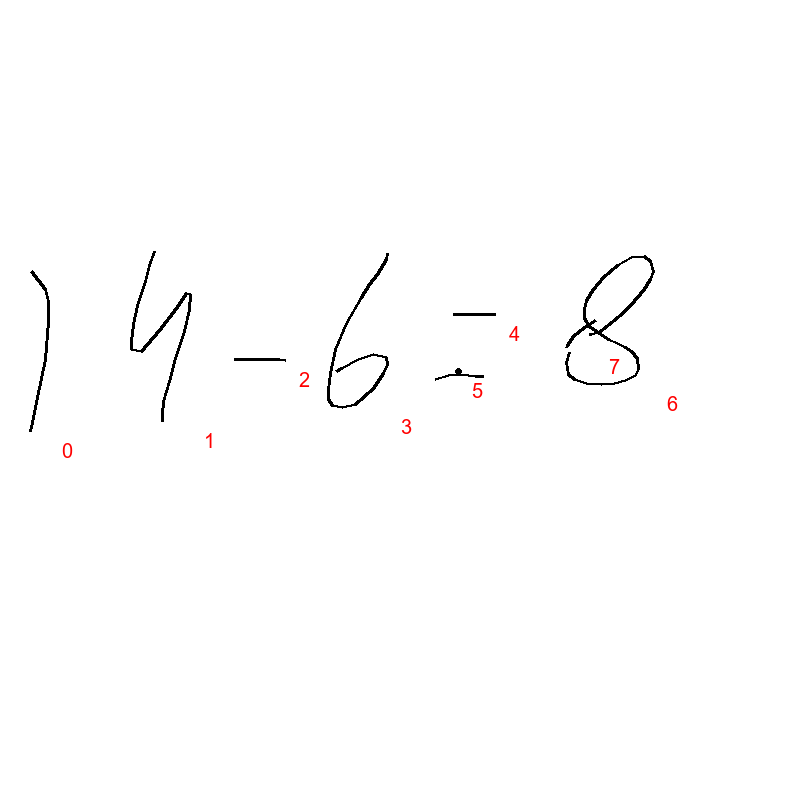 14-6=8
0 1 2 3 4 5 6 7